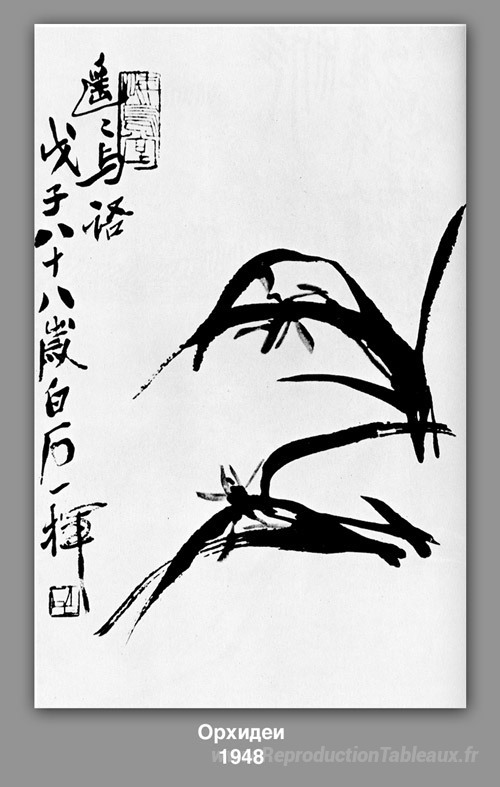 遙〻与
戊子八十八歲白石一揮
Орхидеи
1948
ReproductionTableaux.fr